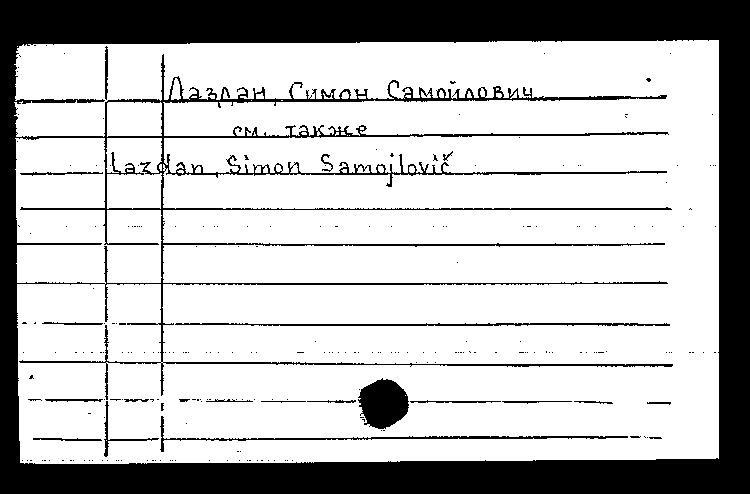 Лаздан, Симон Самойлович
см. также
Lazdan, Simon Samojlovič